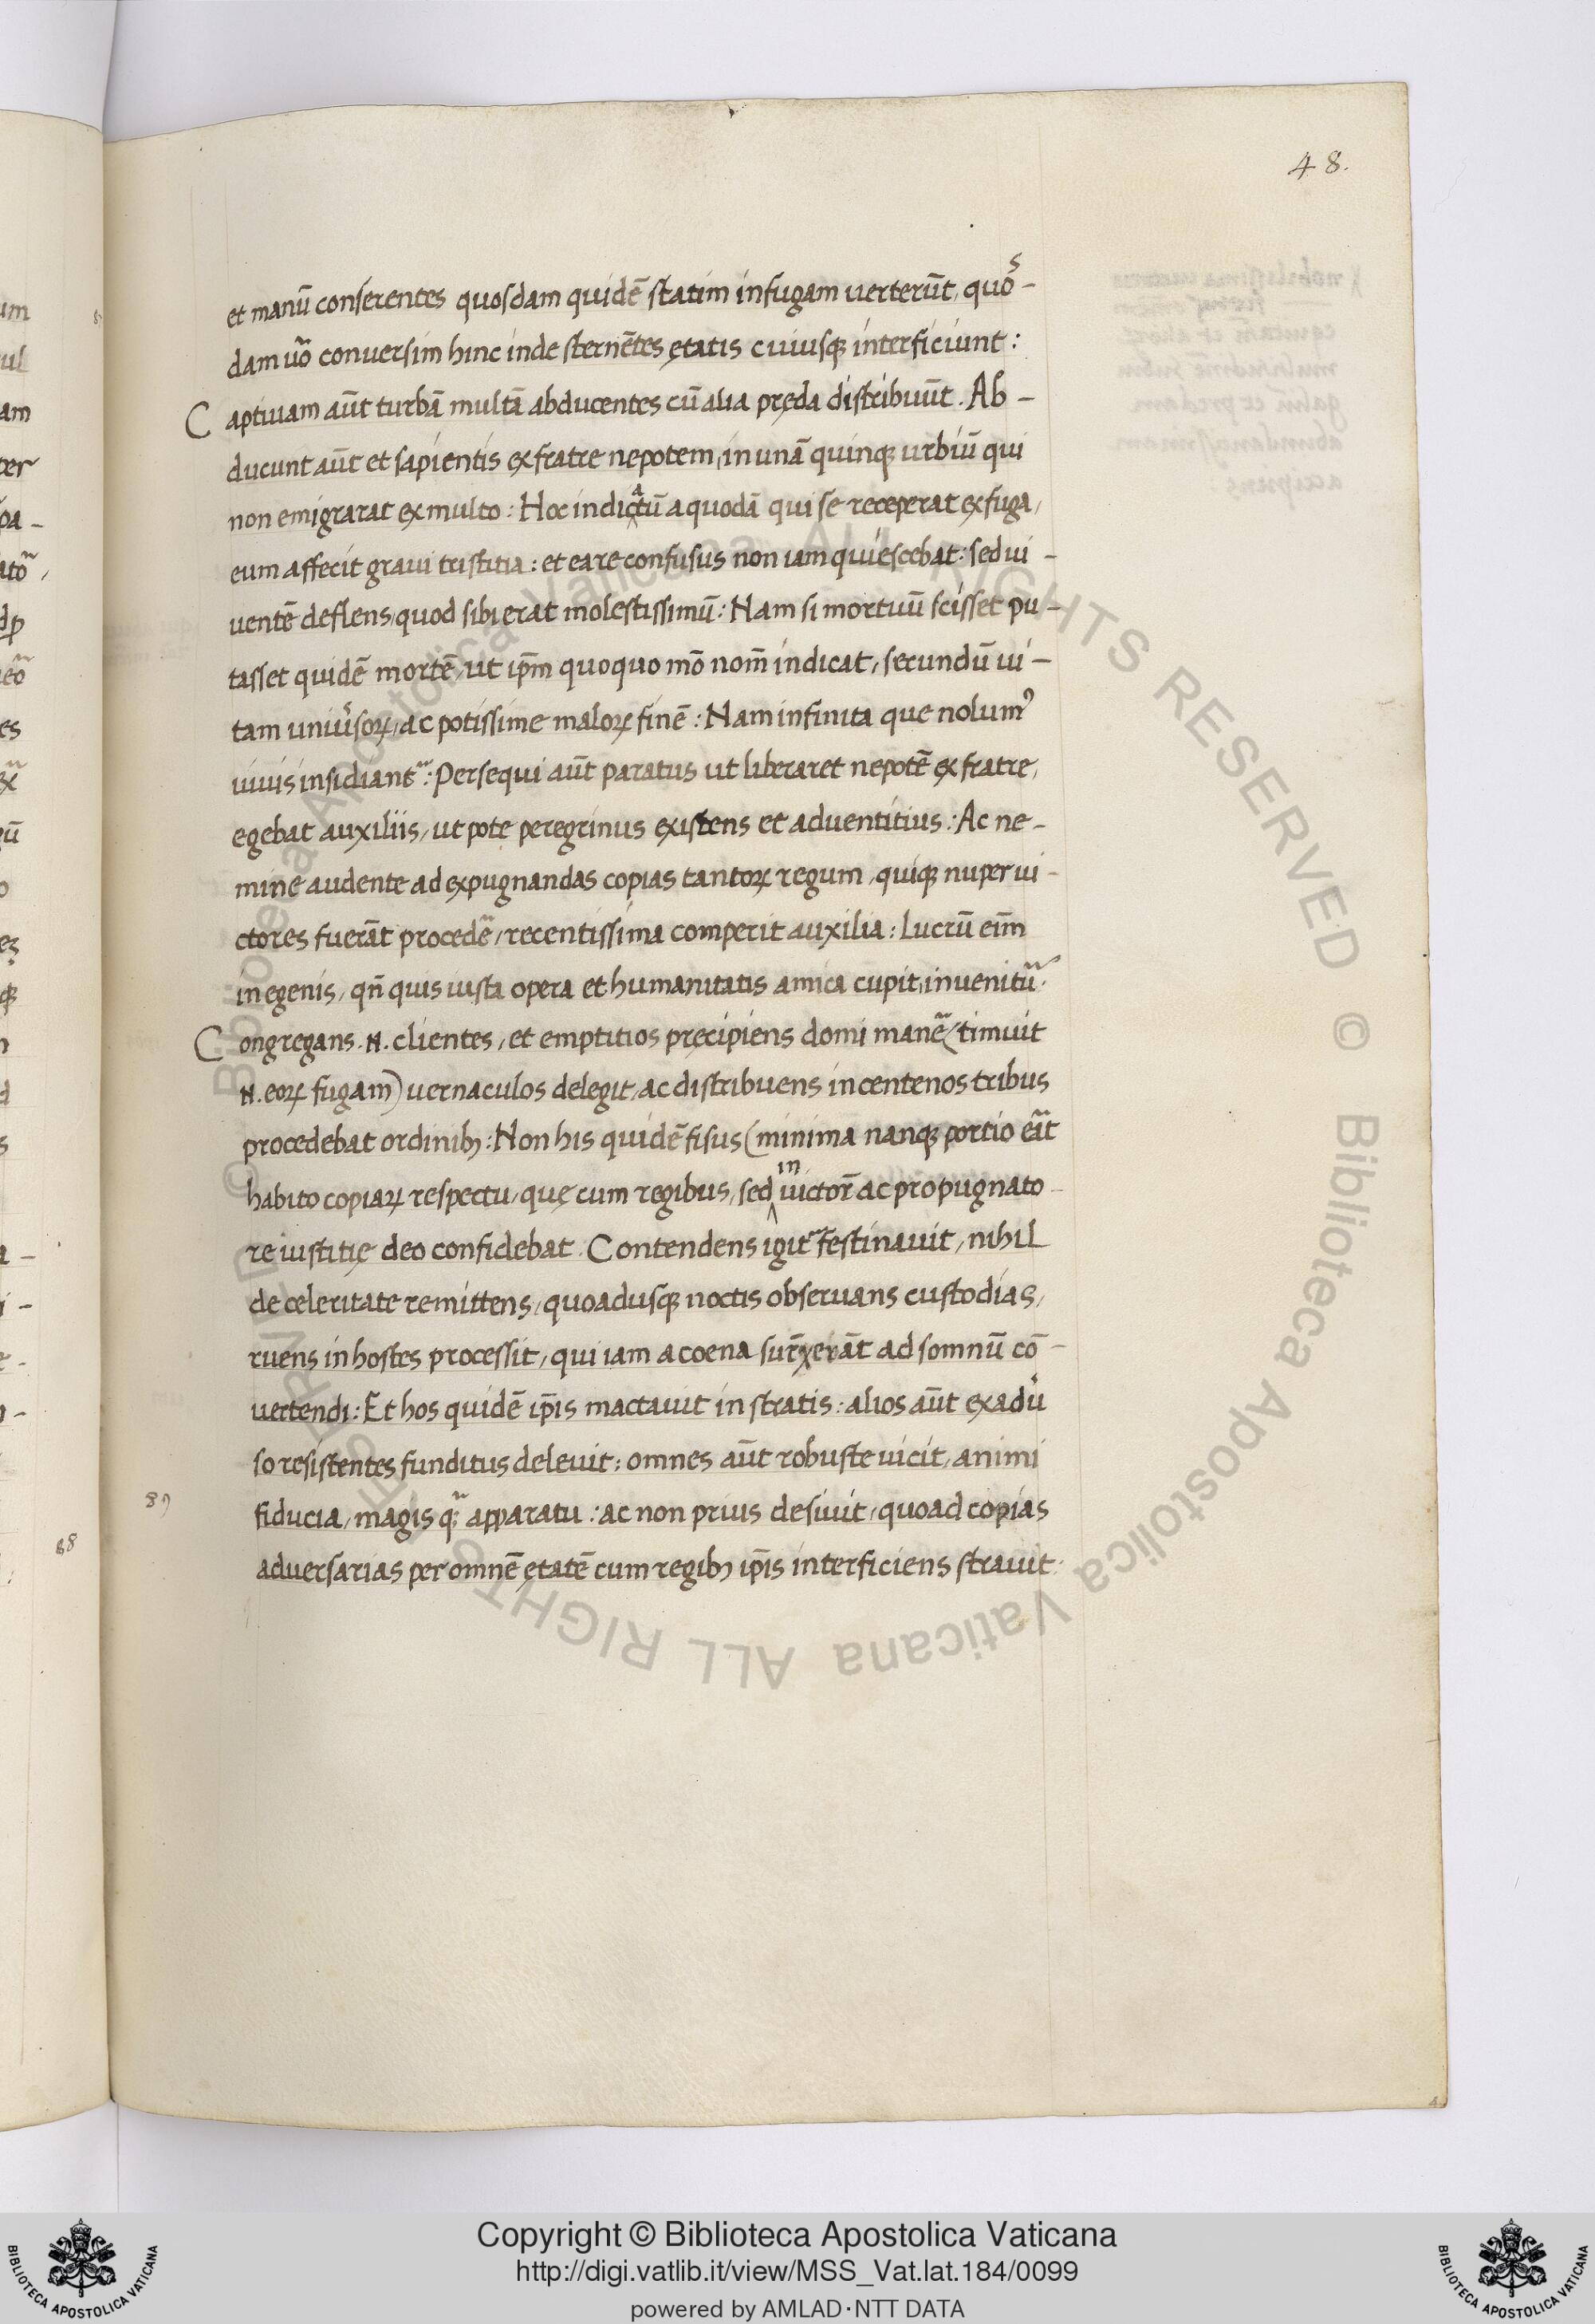 48.
et manū conserentes quosdam quidē statim in fugam uerterūt, quos-
dam uo᷑ conuersim hinc inde sternētes ętatis cuiusq; interficiunt:
Captiuam aūt turbā multā abducentes cū alia pręda distribuūt. Ab-
ducunt aūt et sapientis ex fratre nepotem, in unā quinq; urbiū qui
non emigrarat ex multo: Hoc indicatū a quodā qui se receperat ex fuga,
eum affecit graui tristitia: et ea re confusus non iam quiescebat: sed ui-
uentē deflens, quod sibi erat molestissimū: Nam si mortuū scisset pu-
tasset quidē mortē, ut ip̄m quoquo mō nom̄ indicat, secundū ui-
tam uniu᷑soꝝ, ac potissime maloꝝ finē: Nam infinita que nolumꝰ
uiuis insidiant᷑: Persequi aūt paratus ut liberaret nepotē ex fratre,
egebat auxiliis, ut pote peregrinus existens et aduentitius: Ac ne-
mine audente ad expugnandas copias tantoꝝ regum, quiq; nuper ui-
ctores fuerāt procede᷑, recentissima comperit auxilia: Lucrū eīm
in egenis, qn̄ quis iusta opera et humanitatis amica cupit, inuenitu᷑.
Congregans .N. clientes, et emptitios pręcipiens domi mane᷑ (timuit
.N. eoꝝ fugam) uernaculos delegit, ac distribuens in centenos tribus
procedebat ordinibꝫ: Non his quidē fisus (minima nanq; portio ea᷑t
habito copiaꝝ respectu, quę cum regibus, sed in uictor̄ ac propugnato-
re iustitię deo confidebat. Contendens igit᷑ festinauit, nihil
de celeritate remittens, quoadusq; noctis obseruans custodias,
ruens in hostes processit, qui iam a coena sur̄xerāt ad somnū cō-
uertendi: Et hos quidē ip̄is mactauit in stratis: alios aūt ex adu᷑
so resistentes funditus deleuit: omnes aūt robuste uicit, animi
fiducia, magis q᷑; apparatu: ac non prius desiuit, quoad copias
aduersarias per omnē ętatē cum regibꝫ ip̄is interficiens strauit.
89
88
© Biblioteca Apostolica Vaticana ALL RIGHTS RESERVED
© Biblioteca Apostolica Vaticana ALL RIGHTS RESERVED
Copyright © Biblioteca Apostolica Vaticana
http://digi.vatlib.it/view/MSS_Vat.lat.184/0099
powered by AMLAD·NTT DATA
BIBLIOTECA APOSTOLICA VATICANA
BIBLIOTECA APOSTOLICA VATICANA